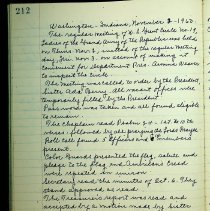 212
Washington - Indiana, November 8 - 1950.
The regular meeting of U. S. Grant Circle No. 19,
Ladies of the Grand Army of the Republic was held
on Wednes Nov. 8, instead of the regular meeting
day, Nov. 3, on account of making of
garments for Department Pres. Anna
to inspect the circle.
The meeting was called to order by the President
Sister Ada Berry. All vacant offices were
temporarily filled by the President.
Password was taken and all found eligible
to remain.
The Chaplain read Psalms 34 - 1st to 10th
verses followed by all praying the Lords Prayer
Roll call found 5 Officers and members
present.
Color Bearers presented the flag, salute and
pledge to the flag and American Creed
was repeated in unison
Secretary read the minutes of Oct. 6. They
stand approved as read
The Treasurer's report was read and
accepted by a motion made by Sister